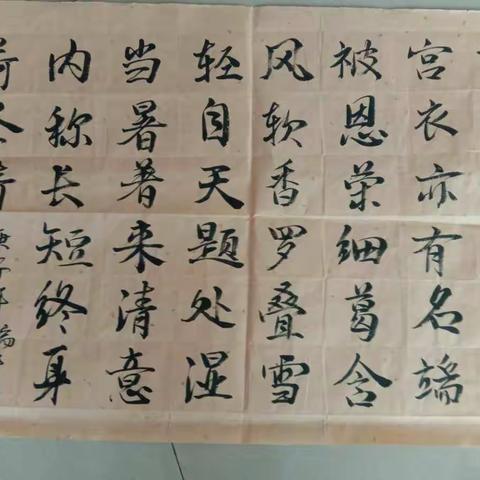 宫衣亦有名端
被恩荣细葛含
风软香罗叠雪
轻自天题处湿
当暑著来清意
内称长短终身
荷圣情
庚子年端